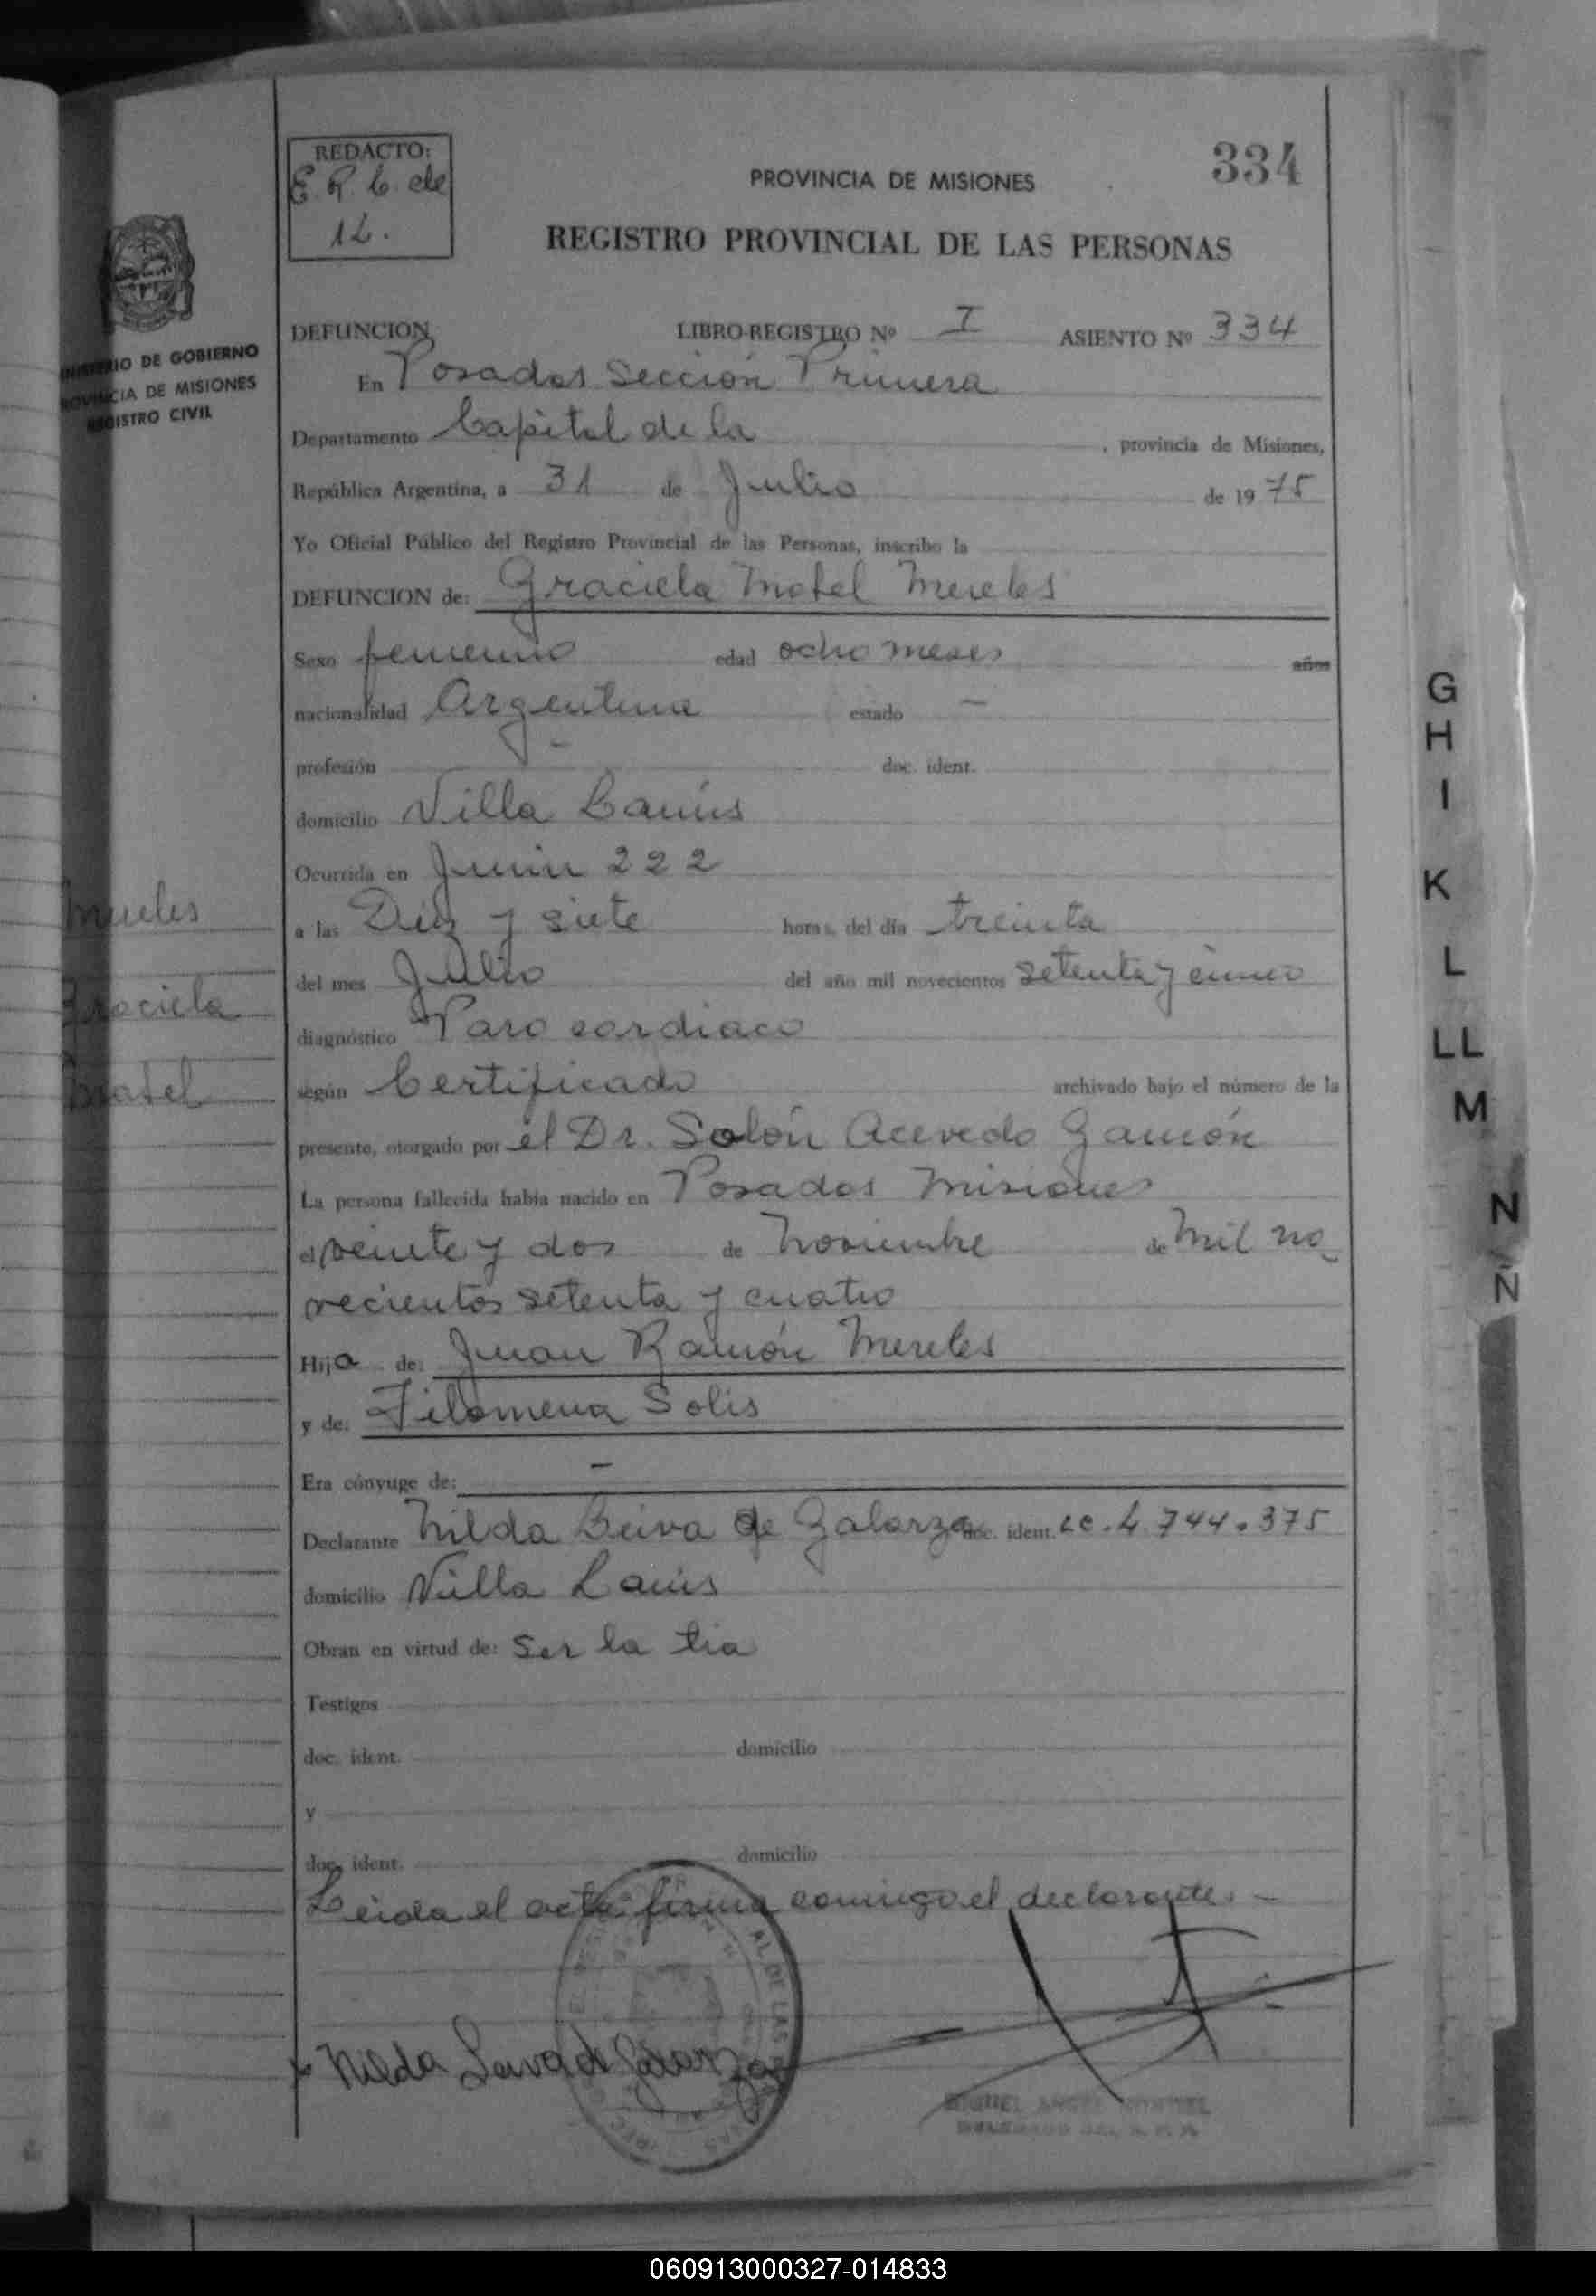 REDACTO:
E. R. C. de
12.
PROVINCIA DE MISIONES
334
REGISTRO PROVINCIAL DE LAS PERSONAS
DE GOBIERNO
DE MISIONES
CIVIL
DEFUNCION
LIBRO-REGISTRO Nº I ASIENTO Nº 334
En Posadas Sección Primera
Departamento Capital de la , provincia de Misiones,
República Argentina, a 31 de Julio de 1975
Yo Oficial Público del Registro Provincial de las Personas, inscribo la
DEFUNCION de: Graciela Mabel Mereles
Sexo femenino edad ocho meses años
nacionalidad Argentina estado –
profesión – doc. ident.
domicilio Villa Lanús
Ocurrida en Junin 222
a las Diez y siete horas, del día treinta
del mes Julio del año mil novecientos setenta y cinco
diagnóstico Paro cardiaco
según Certificado archivado bajo el número de la
presente, otorgado por el Dr. Solón Acevedo
La persona fallecida había nacido en Posadas Misiones
el veinte y dos de Noviembre de mil no
vecientos setenta y cuatro
Hija de: Juan Ramón Mereles
y de: Filomena Solis
Era cónyuge de: –
Declarante Nilda Leiva de Galarza doc. ident. LC. 4.744.375
domicilio Villa Lanús
Obran en virtud de: Ser la tia
Testigos
doc. ident. domicilio
y
doc. ident. domicilio
Leida el acta firma conmigo el declarante. –
Nilda Leiva de Galarza
MIGUEL ANGEL
Mereles
Graciela
Mabel
G
H
I
K
L
LL
M
N
Ñ
060913000327-014833